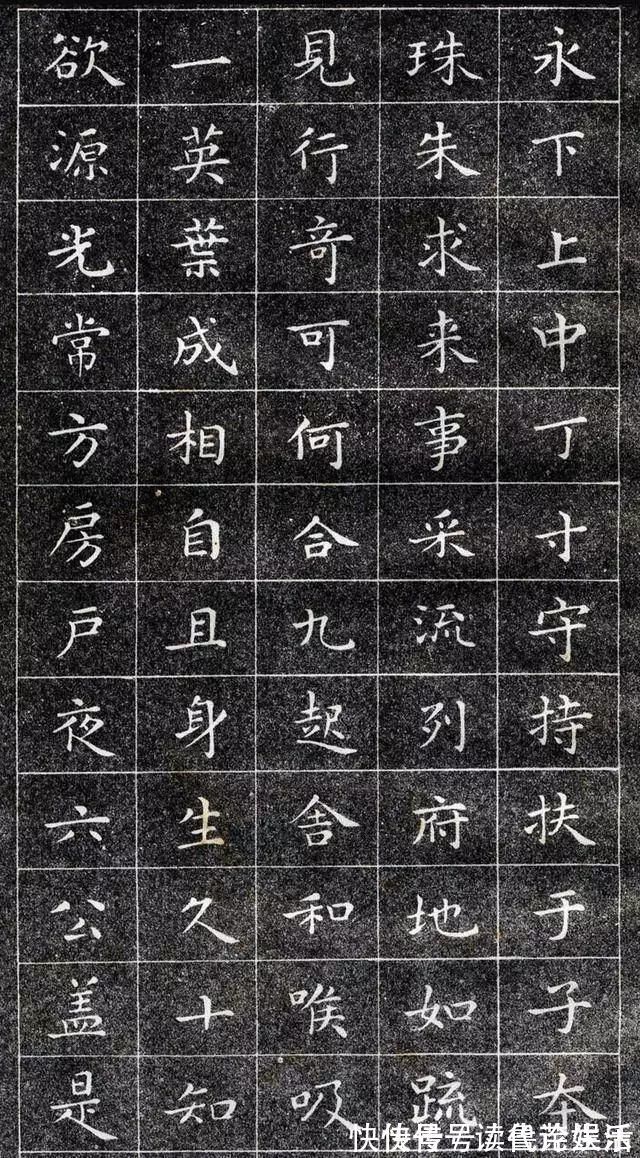 永下上中丁寸守持扶于子本
珠朱求来事采流列府地如疏
見行奇可何合九起舍和唉吸
一英葉成相自且身生久十知
欲源光常方房戶夜六公盖是